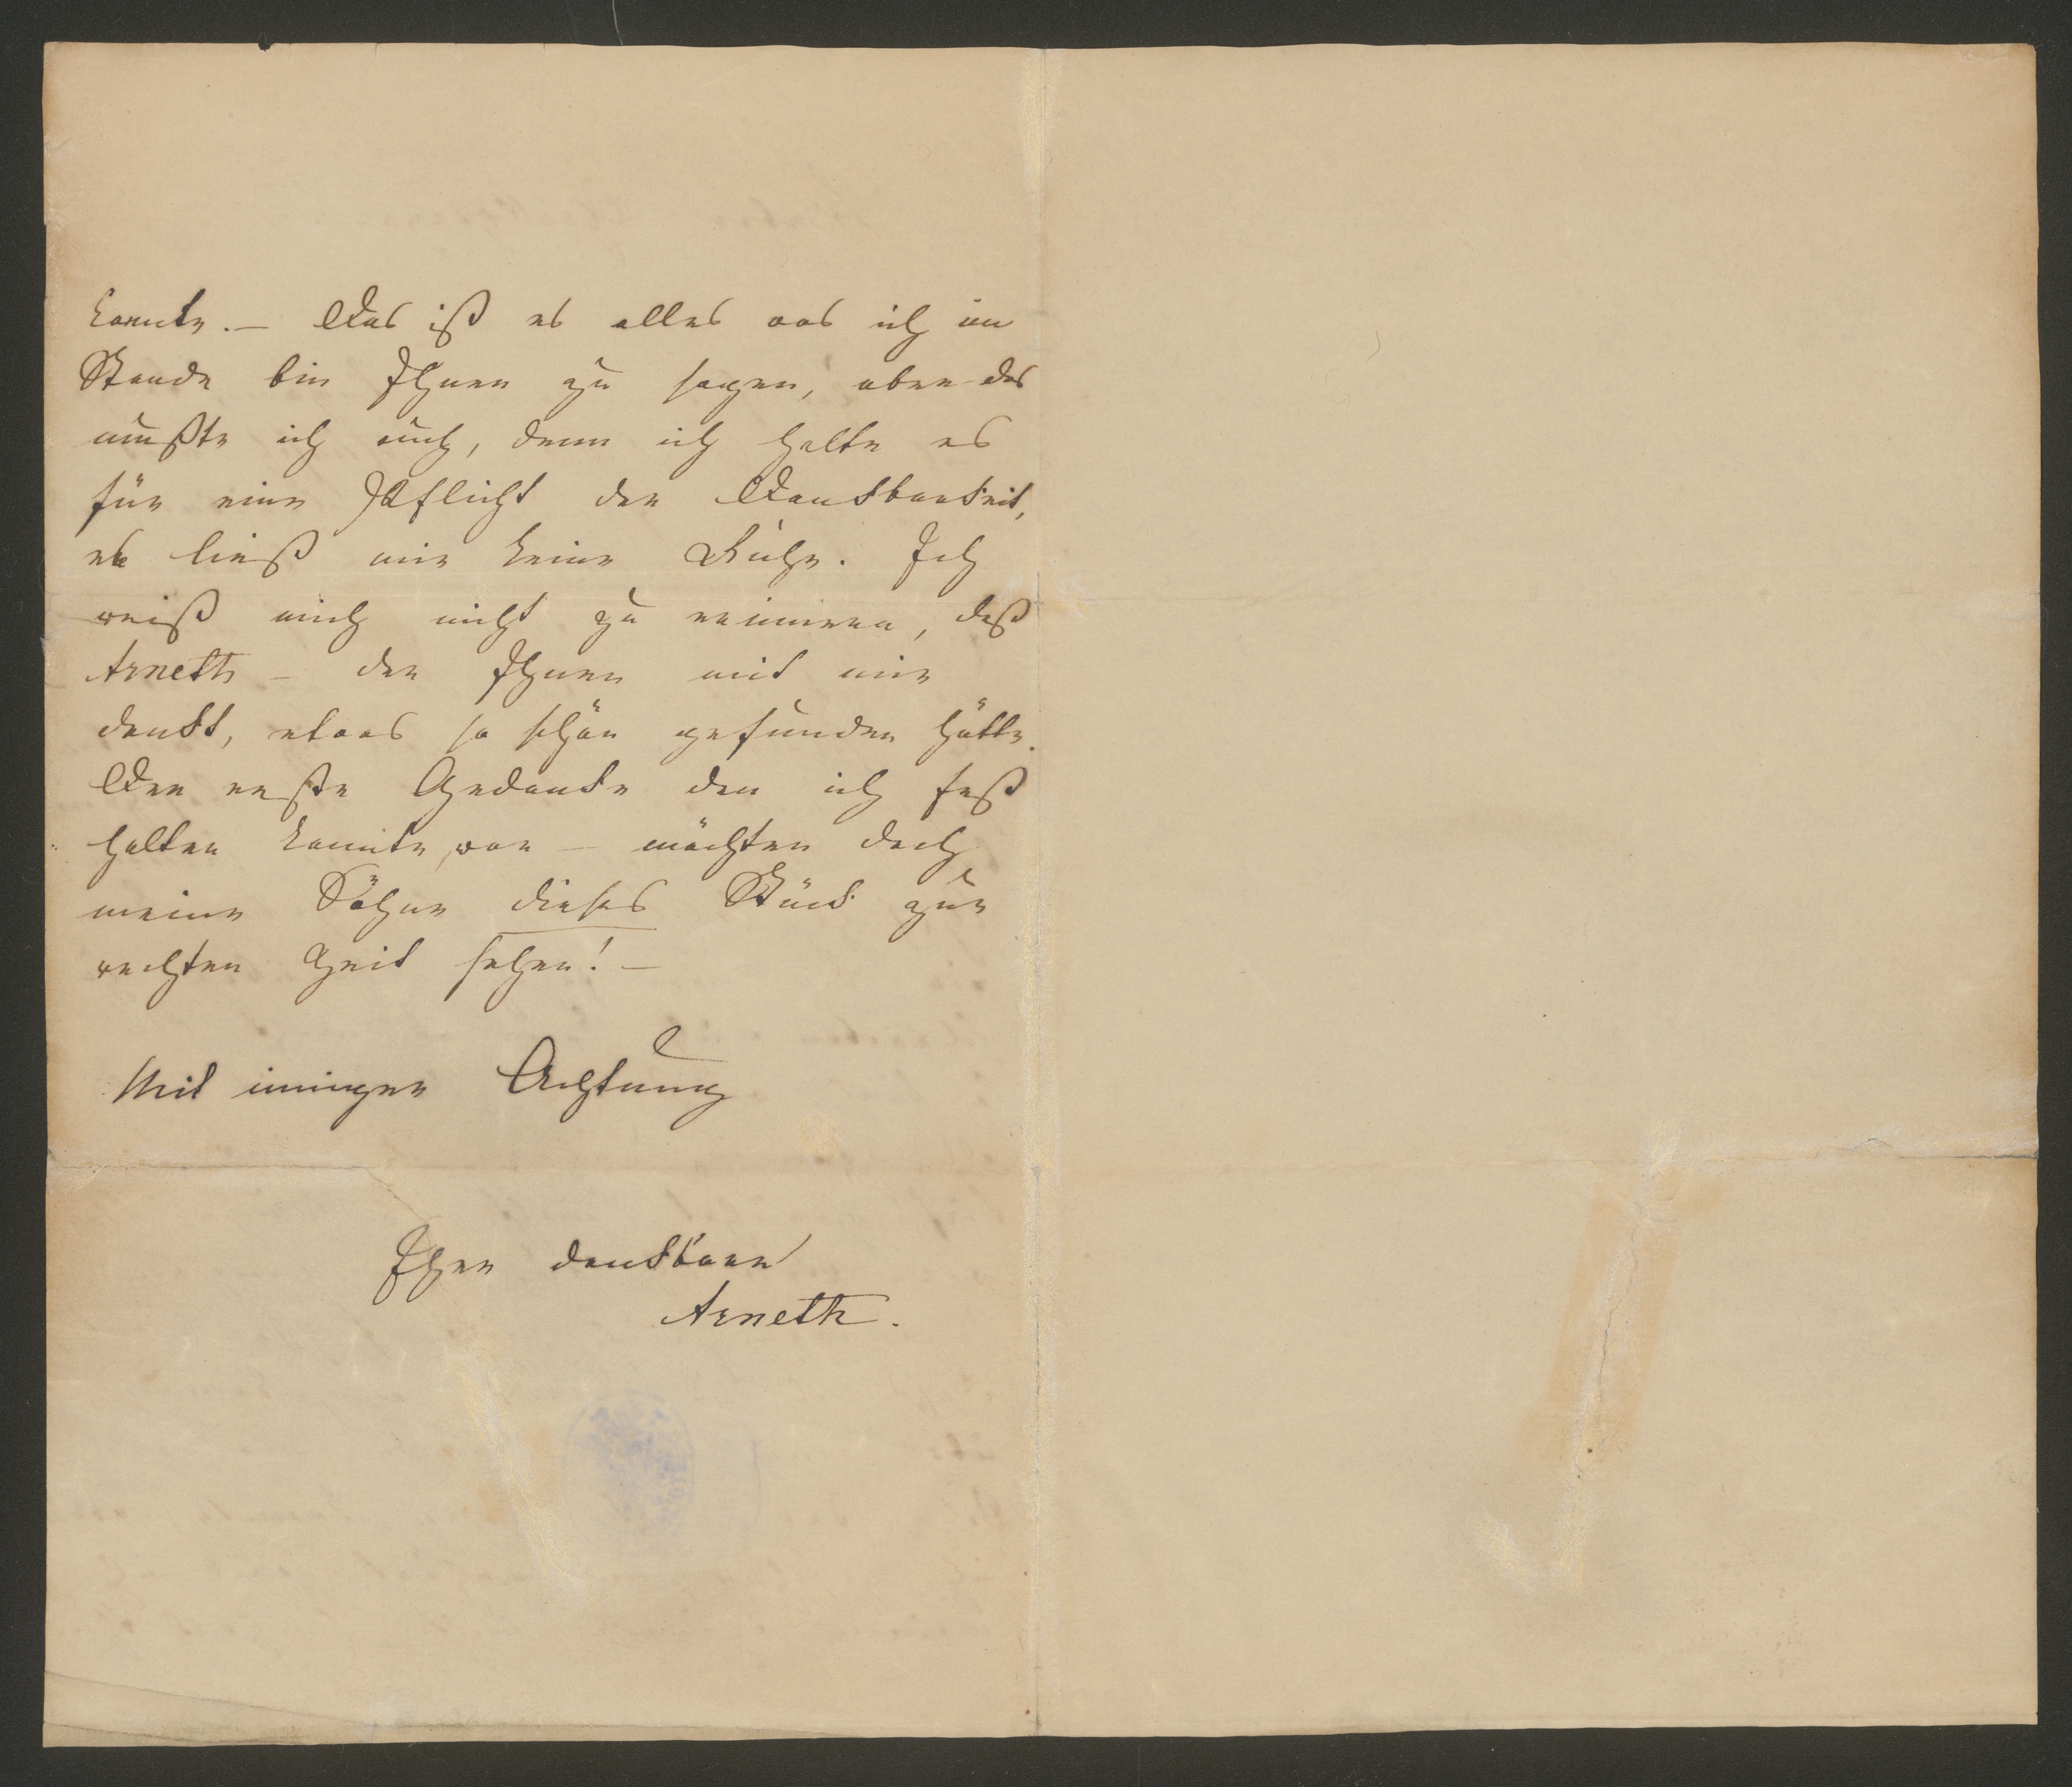 konnte. — Das ist es alles was ich im
Stande bin Ihnen zu sagen, aber das
mußte ich auch, denn ich halte es
für eine Pflicht der Dankbarkeit,
es ließ mir keine Ruhe. Ich
weiß mich nicht zu erinnern, daß
Arneth — der Ihnen mit mir
dankt, etwas so schön gefunden hätte.
Der erste Gedanke den ich fest
halten konnte, war — möchten doch
meine Söhne dieses Stück zur
rechten Zeit sehen! —
Mit inniger Achtung
Ihre dankbare
Arneth.